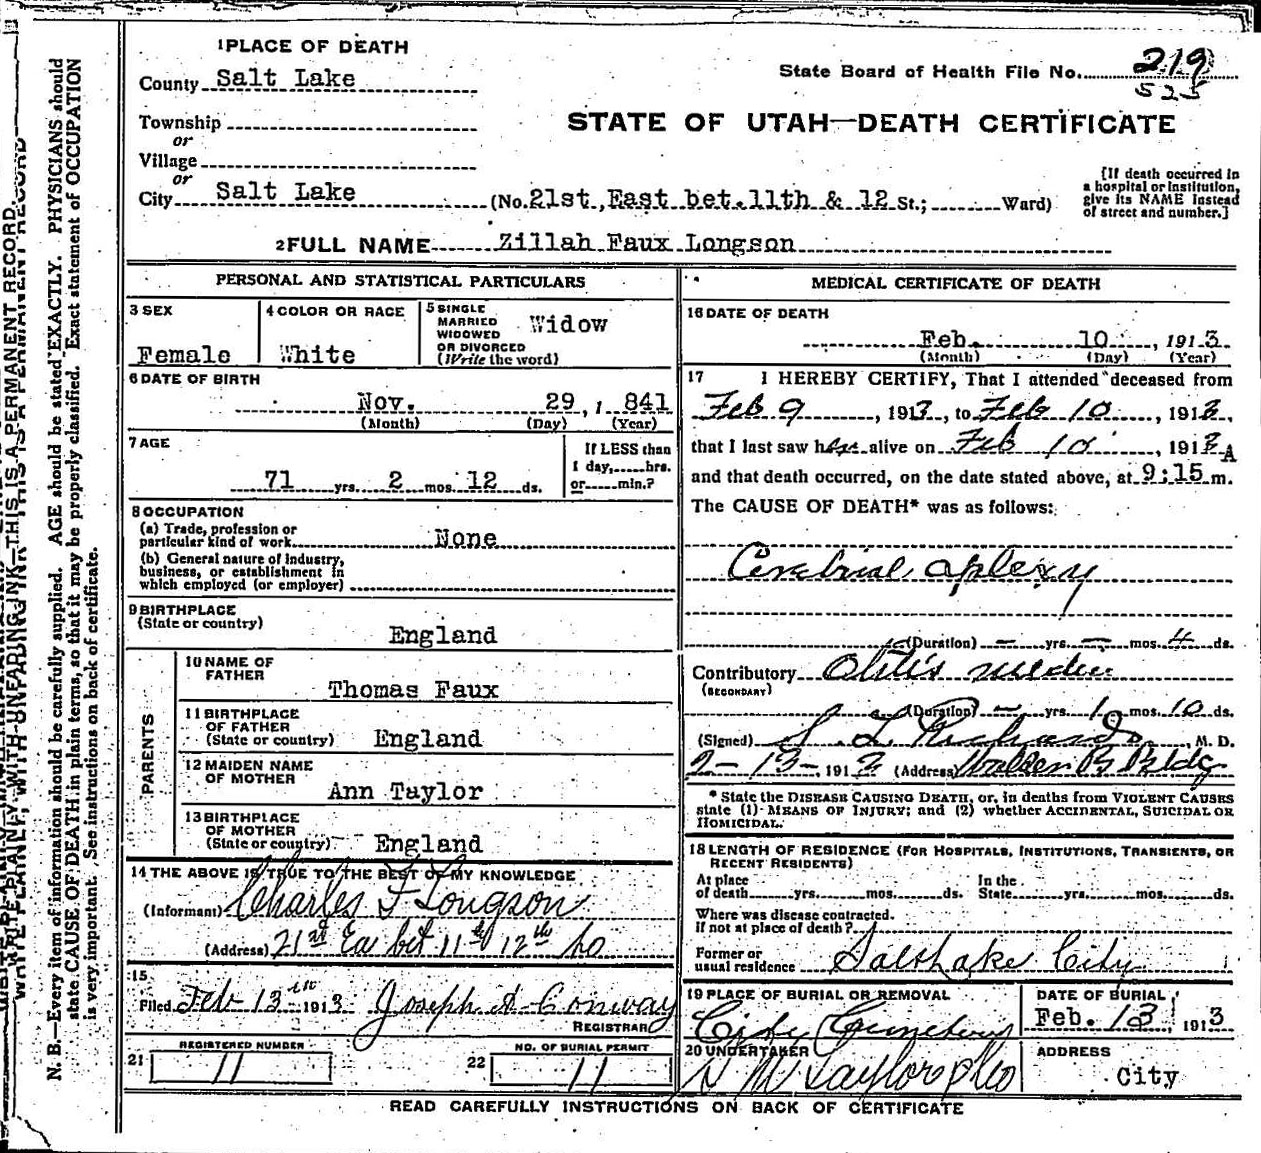 1 PLACE OF DEATH
County Salt Lake
Township
or
Village
or
City Salt Lake (No. 21st, East bet. 11th & 12 St.; Ward)
State Board of Health File No. 219
525
STATE OF UTAH—DEATH CERTIFICATE
[If death occurred in
a hospital or institution,
give its NAME instead
of street and number.]
2 FULL NAME Zillah Faux Longson
PERSONAL AND STATISTICAL PARTICULARS
3 SEX
Female
4 COLOR OR RACE
White
5 SINGLE
MARRIED
WIDOWED
OR DIVORCED
(Write the word)
Widow
6 DATE OF BIRTH
Nov. 29, 1 841
(Month) (Day) (Year)
7 AGE
71 yrs. 2 mos. 12 ds.
If LESS than
1 day, hrs.
or min.?
8 OCCUPATION
(a) Trade, profession or
particular kind of work None
(b) General nature of industry,
business, or establishment in
which employed (or employer)
9 BIRTHPLACE
(State or country)
England
PARENTS
10 NAME OF
FATHER
Thomas Faux
11 BIRTHPLACE
OF FATHER
(State or country) England
12 MAIDEN NAME
OF MOTHER
Ann Taylor
13 BIRTHPLACE
OF MOTHER
(State or country) England
14 THE ABOVE IS TRUE TO THE BEST OF MY KNOWLEDGE
(Informant) Charles F Longson
(Address) 21st Ea bet 11th 12th So
15
Filed Feb 13th 1913 Joseph A Conway
REGISTRAR
REGISTERED NUMBER
21 11
NO. OF BURIAL PERMIT
22 11
MEDICAL CERTIFICATE OF DEATH
16 DATE OF DEATH
Feb. 10, 1913
(Month) (Day) (Year)
17 I HEREBY CERTIFY, That I attended deceased from
Feb 9, 1913, to Feb 10, 1913,
that I last saw her alive on Feb 10 1913
and that death occurred, on the date stated above, at 9:15 A m.
The CAUSE OF DEATH* was as follows:
Cerebrial aplexy
(Duration) — yrs. — mos. 4 ds.
Contributory Otitis media
(SECONDARY)
(Duration) — yrs. 1 mos. 10 ds.
(Signed) Richards, M. D.
2-13-, 1913 (Address) Walker B Bldg
* State the DISEASE CAUSING DEATH, or, in deaths from VIOLENT CAUSES
state (1) MEANS OF INJURY; and (2) whether ACCIDENTAL, SUICIDAL OR
HOMICIDAL.
18 LENGTH OF RESIDENCE (FOR HOSPITALS, INSTITUTIONS, TRANSIENTS, OR
RECENT RESIDENTS)
At place
of death yrs. mos. ds.
In the
State yrs. mos. ds.
Where was disease contracted.
if not at place of death?
Former or
usual residence Salt Lake City
19 PLACE OF BURIAL OR REMOVAL
City Cemetery
DATE OF BURIAL
Feb. 13, 1913
20 UNDERTAKER
S M Taylor & Co
ADDRESS
City
READ CAREFULLY INSTRUCTIONS ON BACK OF CERTIFICATE
WRITE PLAINLY, WITH UNFADING INK—THIS IS A PERMANENT RECORD.
N. B.—Every item of information should be carefully supplied. AGE should be stated EXACTLY. PHYSICIANS should
state CAUSE OF DEATH in plain terms, so that it may be properly classified. Exact statement of OCCUPATION
is very important. See instructions on back of certificate.